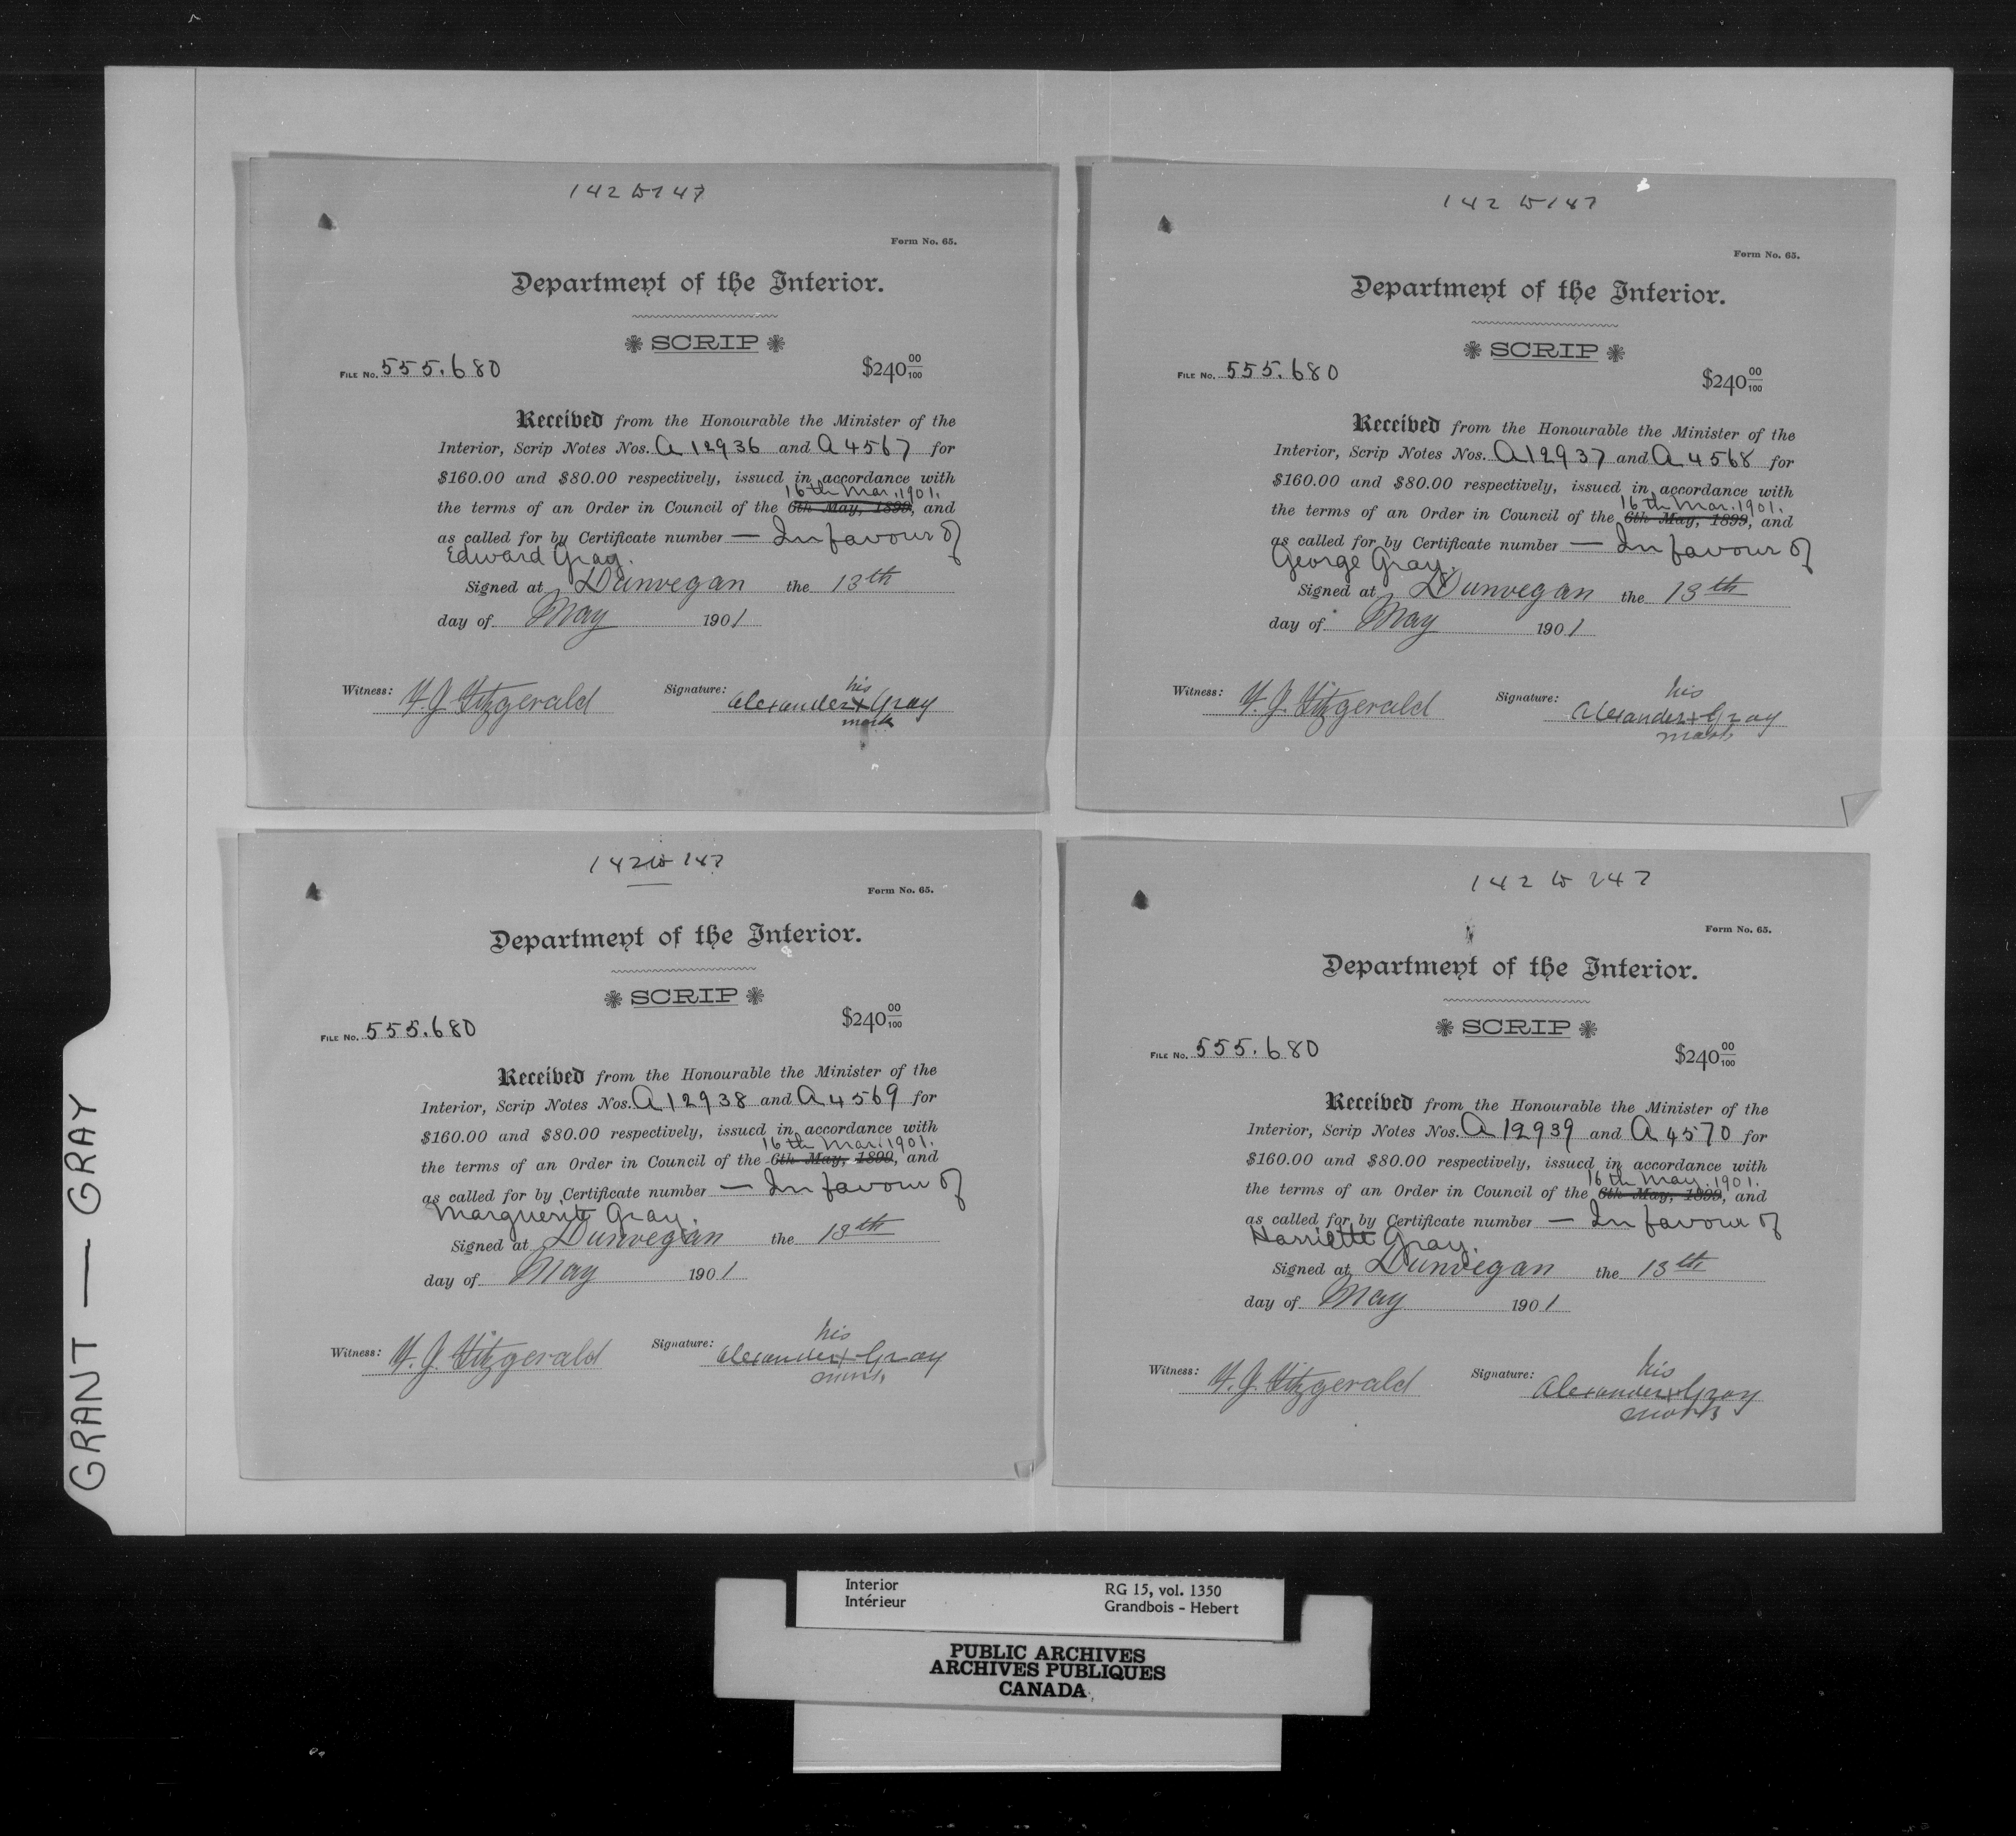 142 W 147
Form No. 65.
Department of the Interior.
SCRIP
FILE No. 555.680
$240 00/100
Received from the Honourable the Minister of the
Interior, Scrip Notes Nos. A 12936 and A 4567 for
$160.00 and $80.00 respectively, issued in accordance with
16th Mar. 1901.
the terms of an Order in Council of the 6th May, 1899, and
as called for by Certificate number — In favour of
Edward Gray.
Signed at Dunvegan the 13th
day of May 1901
Witness: Fitzgerald
his
Signature: Alexander + Gray
mark
142 W 147
Form No. 65.
Department of the Interior.
SCRIP
FILE No. 555.680
$240 00/100
Received from the Honourable the Minister of the
Interior, Scrip Notes Nos. A 12937 and A 4568 for
$160.00 and $80.00 respectively, issued in accordance with
16th Mar. 1901.
the terms of an Order in Council of the 6th May, 1899, and
as called for by Certificate number — In favour of
George Gray.
Signed at Dunvegan the 13th
day of May 1901
Witness: Fitzgerald
his
Signature: Alexander + Gray
mark
142 W 147
Form No. 65.
Department of the Interior.
SCRIP
FILE No. 555.680
$240 00/100
Received from the Honourable the Minister of the
Interior, Scrip Notes Nos. A 12938 and A 4569 for
$160.00 and $80.00 respectively, issued in accordance with
16th Mar. 1901.
the terms of an Order in Council of the 6th May, 1899, and
as called for by Certificate number — In favour of
Marguerite Gray.
Signed at Dunvegan the 13th
day of May 1901
Witness: Fitzgerald
his
Signature: Alexander + Gray
mark
142 W 247
Form No. 65.
Department of the Interior.
SCRIP
FILE No. 555.680
$240 00/100
Received from the Honourable the Minister of the
Interior, Scrip Notes Nos. A 12939 and A 4570 for
$160.00 and $80.00 respectively, issued in accordance with
16th Mar. 1901.
the terms of an Order in Council of the 6th May, 1899, and
as called for by Certificate number — In favour of
Harriette Gray.
Signed at Dunvegan the 13th
day of May 1901
Witness: Fitzgerald
his
Signature: Alexander + Gray
mark
GRANT — GRAY
Interior
Intérieur
RG 15, vol. 1350
Grandbois - Hebert
PUBLIC ARCHIVES
ARCHIVES PUBLIQUES
CANADA